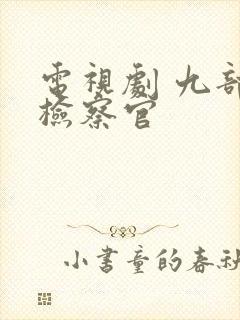 電視劇 九部
檢察官
小書童的春秋